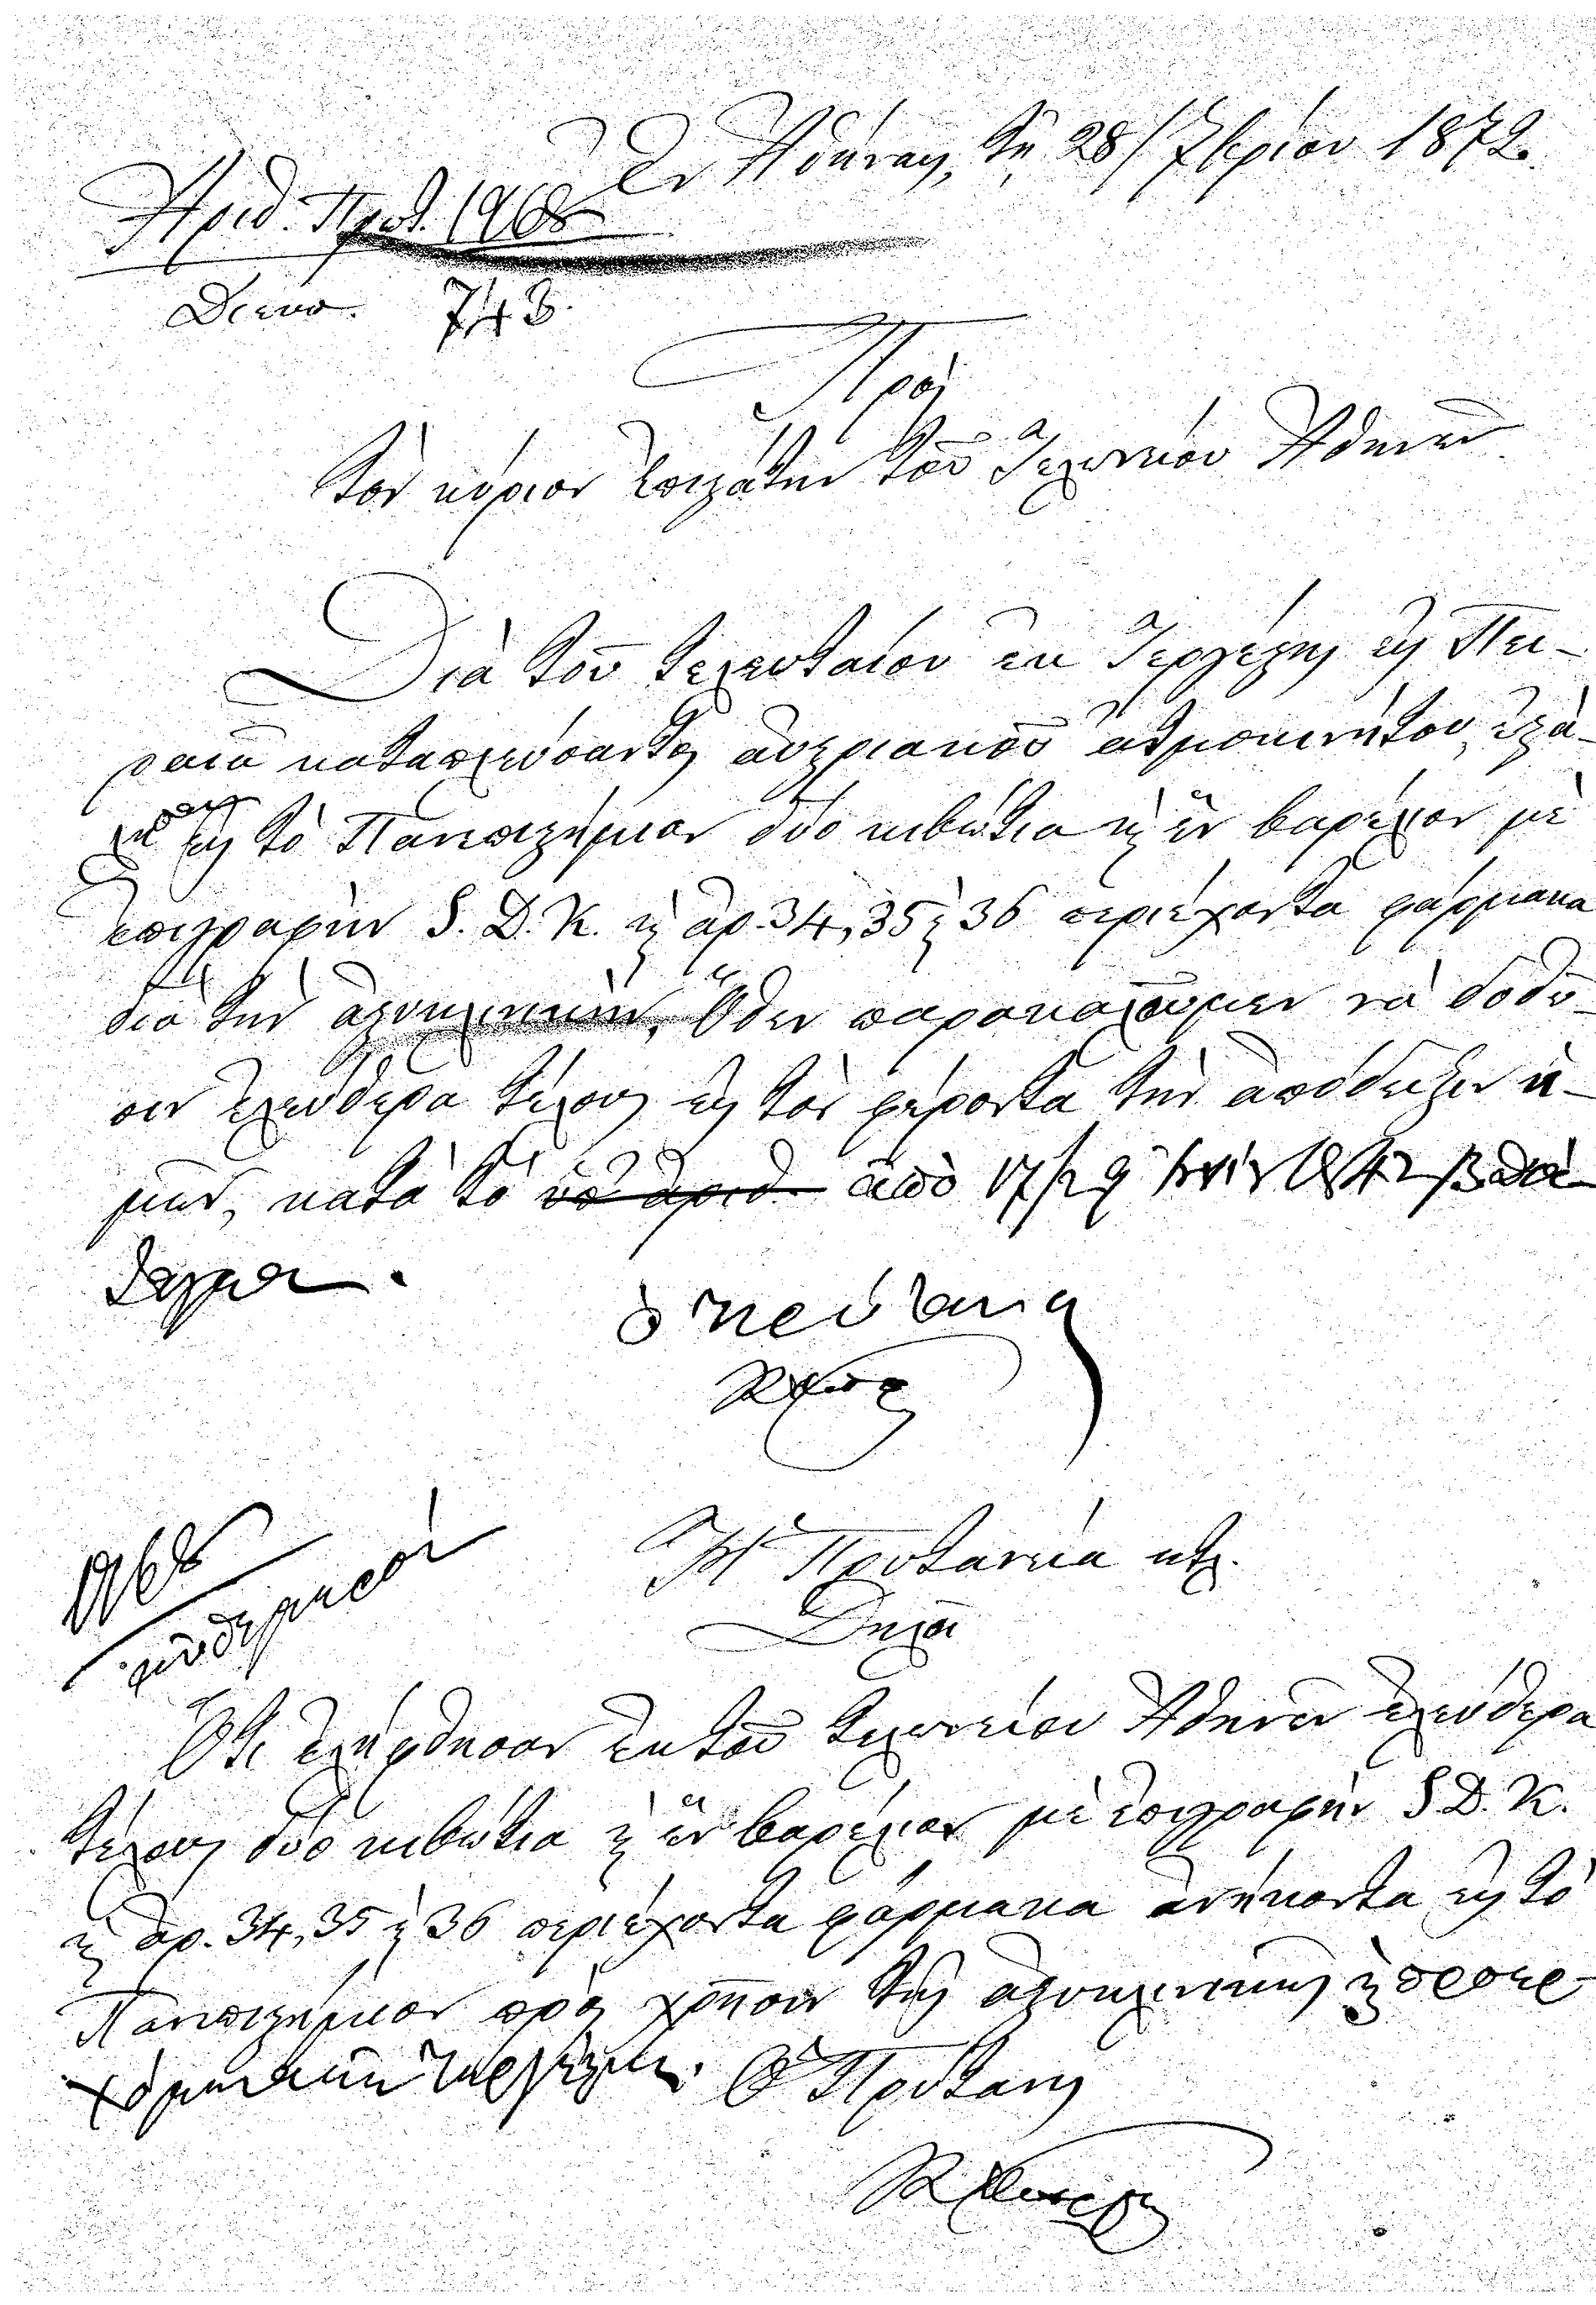 Ἐν Ἀθήναις, τῇ 28/7βρίου 1872.
Ἀριθ. Πρωτ. 1968
Διεκπ. 743.
Πρὸς
τὸν κύριον ἐπιστάτην τοῦ Τελωνείου Ἀθηνῶν
Διὰ τοῦ τελευταίου ἐκ Τεργέστης εἰς Πει-
ραιᾶ καταπλεύσαντος αὐστριακοῦ ἀτμοκινήτου, ἐστά-
λησαν εἰς τὸ Πανεπιστήμιον δύο κιβώτια καὶ ἓν βαρέλιον μὲ
ἐπιγραφὴν S. D. K. καὶ ἀρ. 34, 35 καὶ 36 περιέχοντα φάρμακα
διὰ τὴν ἀστυκλινικήν, Ὅθεν παρακαλοῦμεν νὰ δοθῶ-
σιν ἐλεύθερα τέλους εἰς τὸν φέροντα τὴν ἀπόδειξιν ἡ-
μῶν, κατὰ τὸ ὑπ' ἀριθ. ἀπὸ 17/29
διάταγμα.
ὁ Πρύτανις
1968
Ἡ Πρυτανεία κτλ.
Δηλοῖ
Ὅτι ἐλήφθησαν ἐκ τοῦ τελωνείου Ἀθηνῶν ἐλεύθερα
τέλους δύο κιβώτια καὶ ἓν βαρέλιον μὲ ἐπιγραφὴν S D. K.
καὶ ἀρ. 34, 35 καὶ 36 περιέχοντα φάρμακα ἀνήκοντα εἰς τὸ
Πανεπιστήμιον πρὸς χρῆσιν τῆς ἀστυκλινικῆς καὶ προερ-
χόμενα ἐκ Τεργέστης. Ὁ Πρύτανις